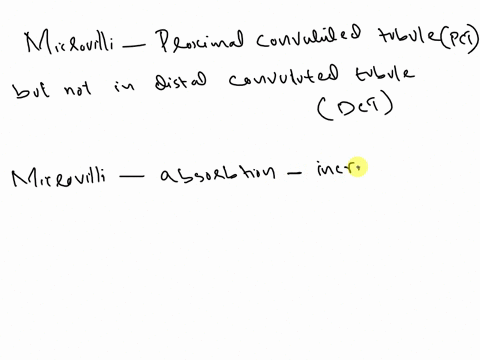 Microvilli — Proximal convoluted tubule (PCT)
but not in distal convoluted tubule
(DCT)
Microvilli — absorbtion — incr